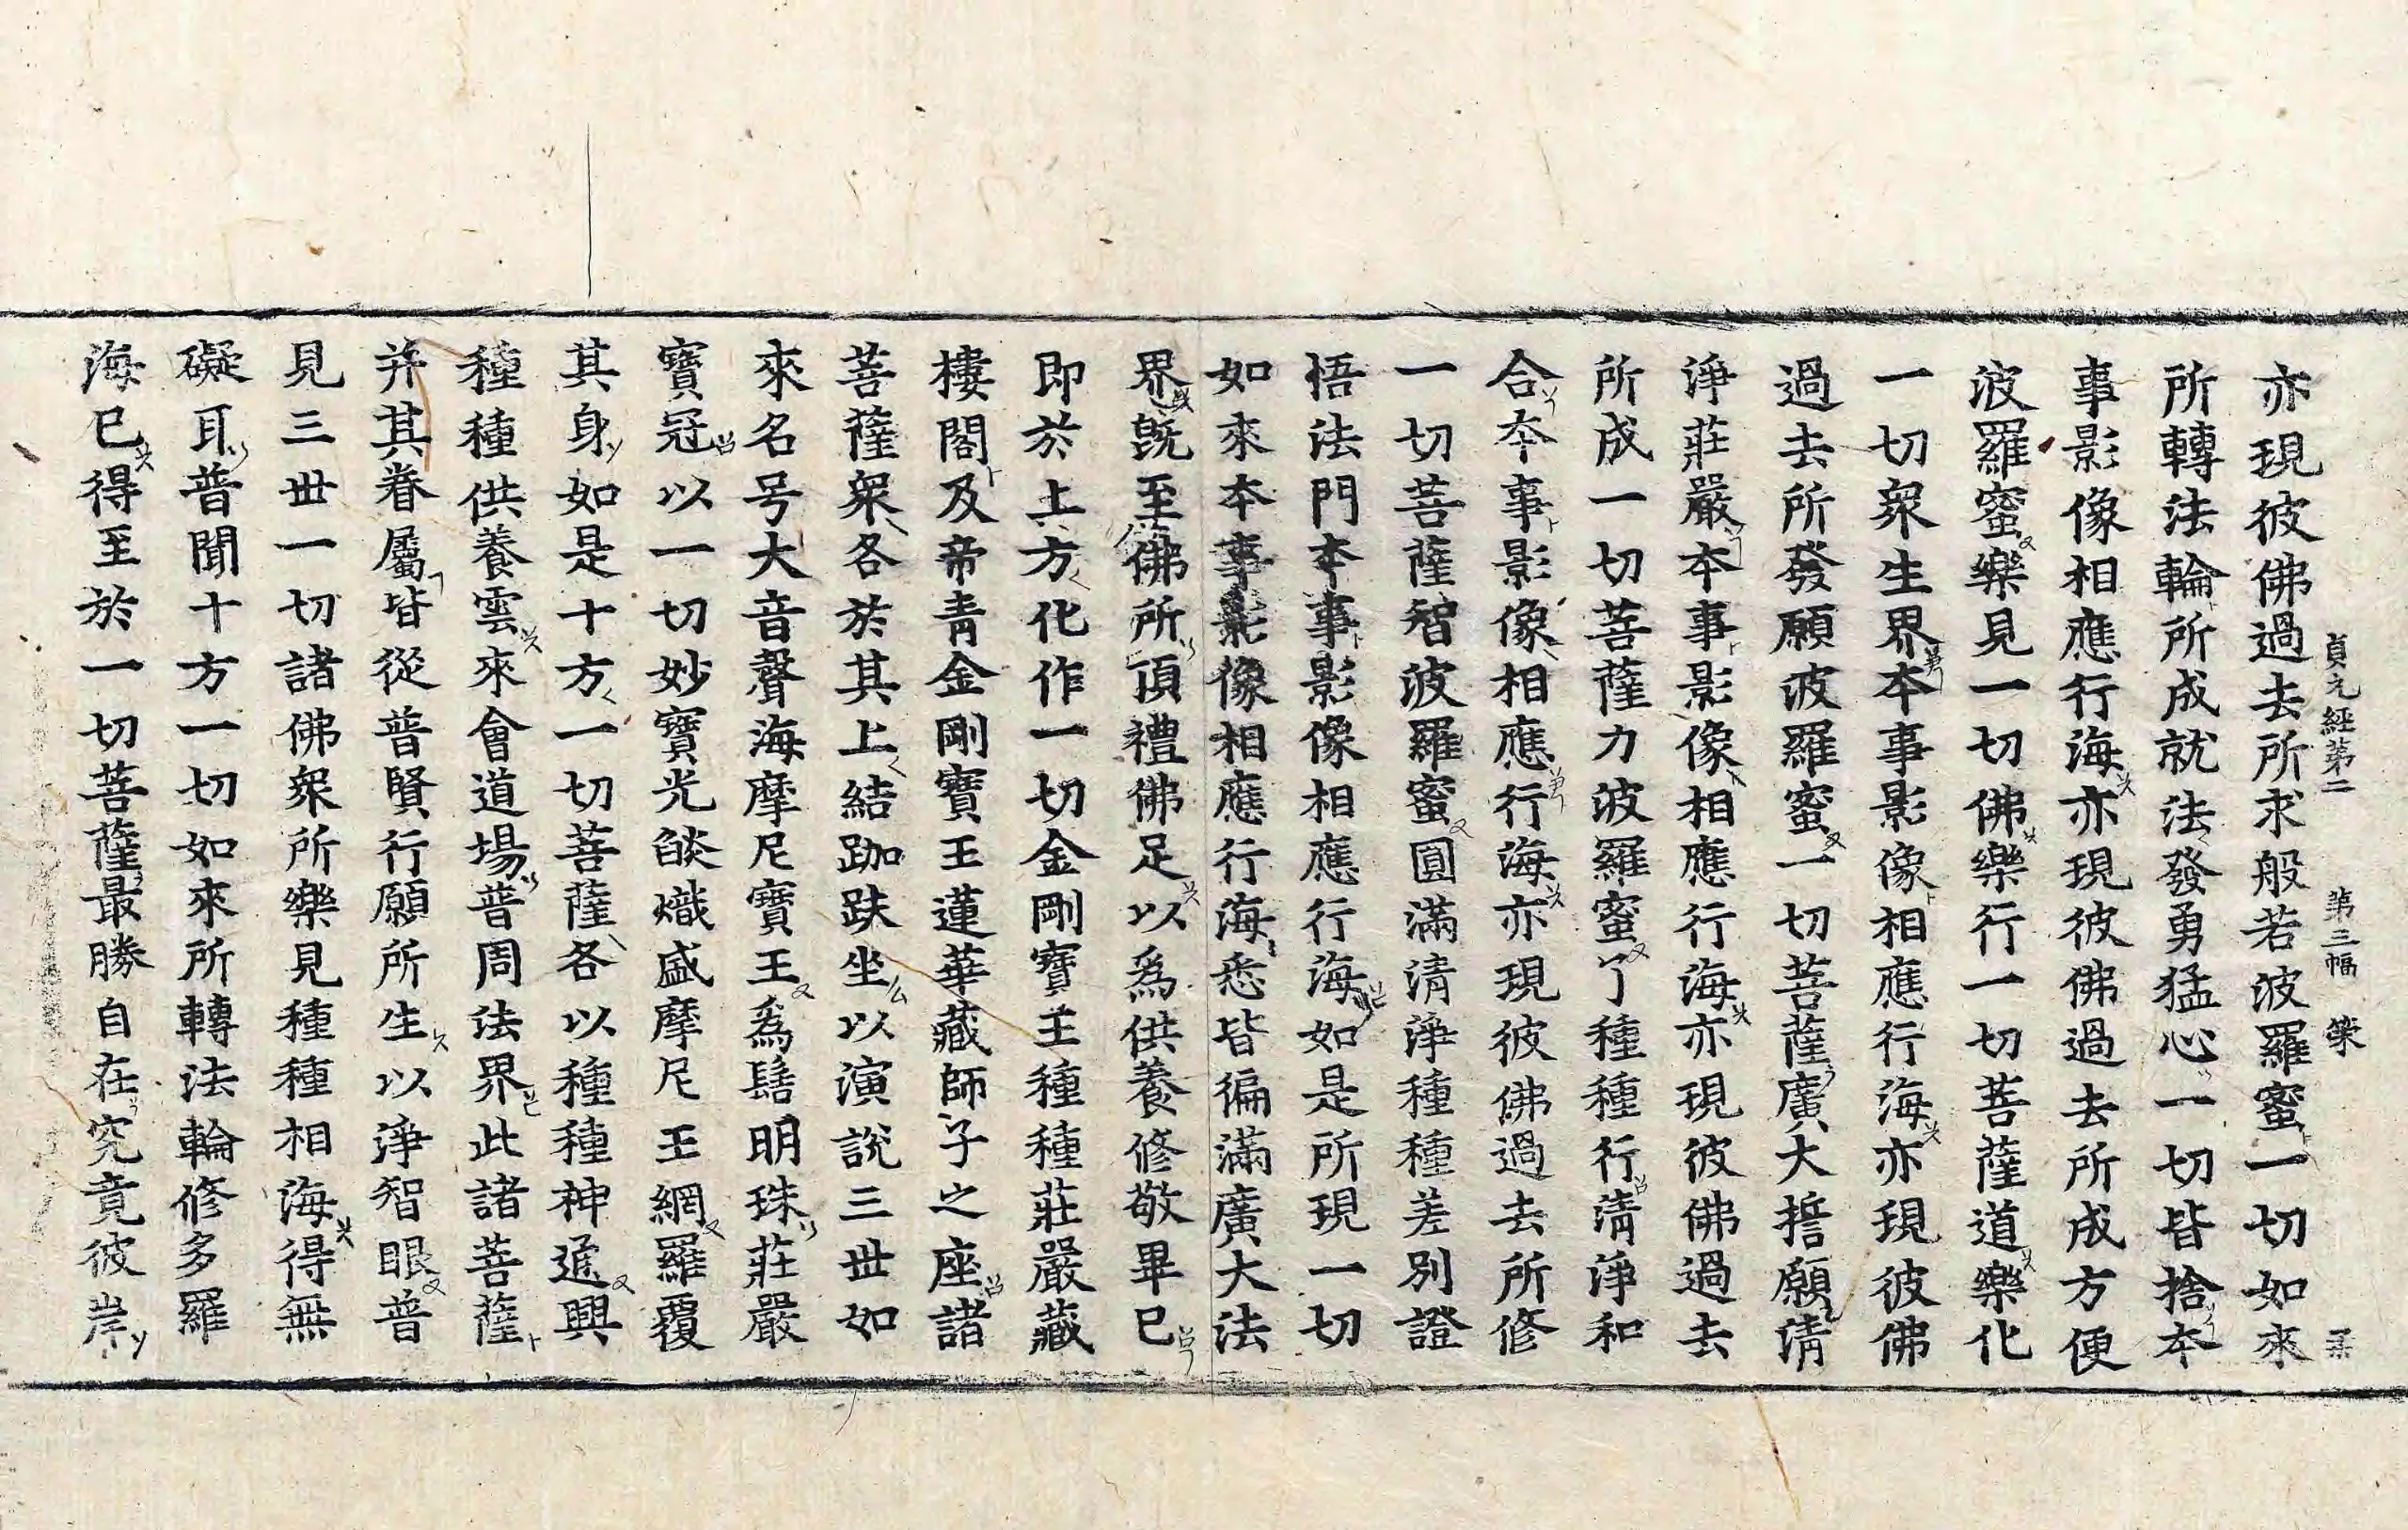 貞元經第二 第三幅
亦現彼佛過去所求般若波羅蜜一切如來
所轉法輪所成就法發勇猛心一切皆捨本
事影像相應行海亦現彼佛過去所成方便
波羅蜜樂見一切佛樂行一切菩薩道樂化
一切衆生界本事影像相應行海亦現彼佛
過去所發願波羅蜜一切菩薩廣大誓願清
淨莊嚴本事影像相應行海亦現彼佛過去
所成一切菩薩力波羅蜜了種種行清淨和
合本事影像相應行海亦現彼佛過去所修
一切菩薩智波羅蜜圓滿清淨種種差別證
悟法門本事影像相應行海如是所現一切
如來本事影像相應行海悉皆徧滿廣大法
界旣至佛所頂禮佛足以爲供養修敬畢已
即於上方化作一切金剛寶王種種莊嚴藏
樓閣及帝青金剛寶王蓮華藏師子之座諸
菩薩衆各於其上結跏趺坐以演說三世如
來名号大音聲海摩尼寶王爲髻明珠莊嚴
寶冠以一切妙寶光焰熾盛摩尼王網羅覆
其身如是十方一切菩薩各以種種神通興
種種供養雲來會道場普周法界此諸菩薩
并其眷屬皆從普賢行願所生以淨智眼普
見三世一切諸佛衆所樂見種種相海得無
礙耳普聞十方一切如來所轉法輪修多羅
海已得至於一切菩薩最勝自在究竟彼岸